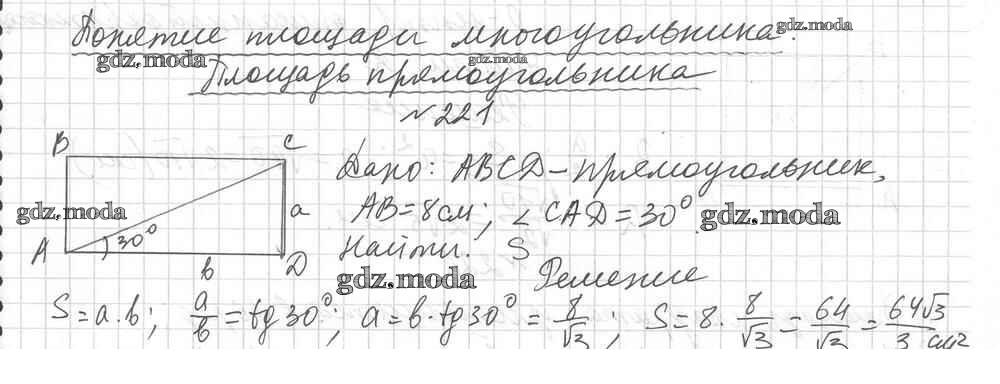 Понятие площади многоугольника. gdz.moda
gdz.moda gdz.moda
Площадь прямоугольника
№221
B C
Дано: ABCD – прямоугольник,
gdz.moda a AB = 8 см; ∠ CAD = 30° gdz.moda
A 30° b D
Найти: S
gdz.moda
Решение
S = a·b; a/b = tg30°; a = b·tg30° = 8/√3; S = 8· 8/√3 = 64/√3 = 64√3/3 см²